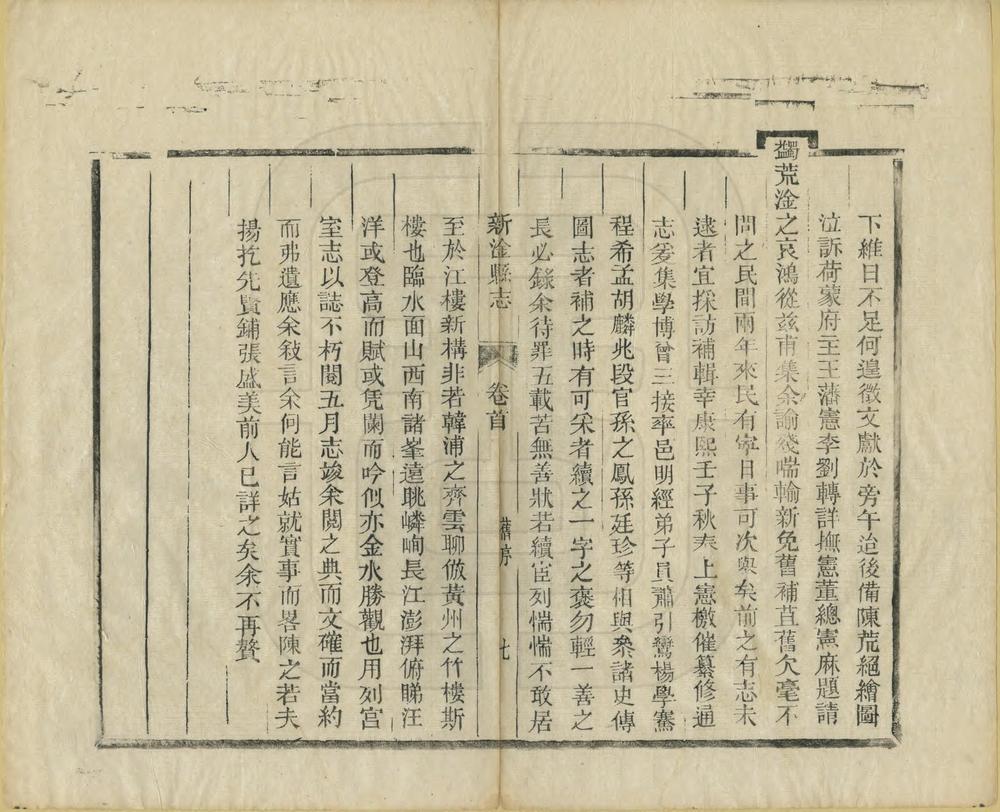 下維日不足何遑徵文獻於旁午迨後備陳荒絕繪圖
泣訴荷蒙府主王藩憲李劉轉詳撫憲董總憲麻題請
蠲荒淦之哀鴻從茲甫集余諭後喘輸新免舊補苴舊欠毫不
問之民間兩年來民有寧日事可次與矣前之有志未
逮者宜採訪補輯幸康熙壬子秋奉上憲檄催纂修通
志爰集學博曾三接率邑明經弟子員蕭引鸞楊學騫
程希孟胡麟兆段官孫之鳳孫廷珍等相與叅諸史傳
圖志者補之時有可采者續之一字之褒勿輕一善之
長必錄余待罪五載苦無善狀若續宦列惴惴不敢居
新淦縣志 卷首 舊序 七
至於江樓新構非若韓浦之齊雲聊倣黃州之竹樓斯
樓也臨水面山西南諸峯遠眺嶙峋長江澎湃俯睇汪
洋或登高而賦或凭闌而吟似亦金水勝觀也用列宮
室志以誌不朽閱五月志竣余閱之典而文確而當約
而弗遺應余敍言余何能言姑就實事而畧陳之若夫
揚扢先賢鋪張盛美前人已詳之矣余不再贅